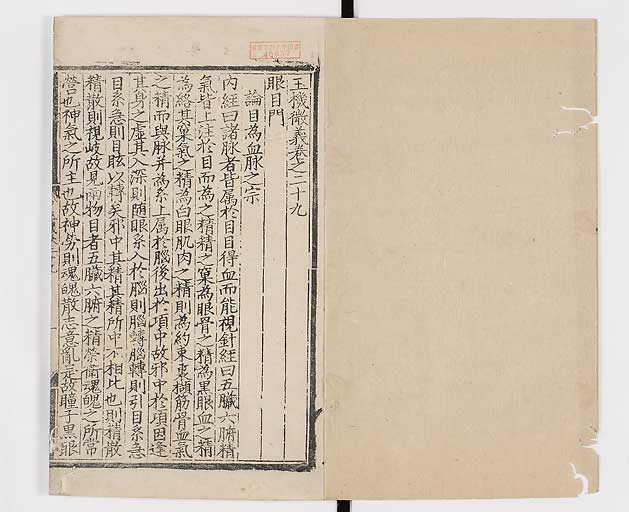 玉機微義卷之二十九
眼目門
論目為血脉之宗
內經曰諸脉者皆属於目目得血而能視針經曰五臟六腑精
氣皆上注於目而為之精精之窠為眼骨之精為黒眼血之精
為絡其窠氣之精為白眼肌肉之精則為約束裹擷筋骨血氣
之精而與脉并為系上属於腦後出於項中故邪中於項因逢
其身之虛其入深則随眼系入於腦則腦轉腦轉則引目系急
目系急則目眩以轉矣邪中其精其精所中不相比也則精散
精散則視岐故見兩物目者五臟六腑之精榮衛魂魄之所常
營也神氣之所主也故神勞則魂魄散志意亂是故瞳子黒眼